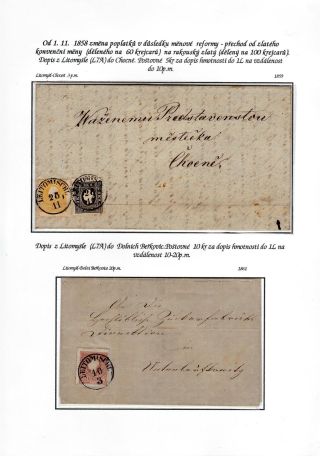 Od 1. 11. 1858 změna poplatků v důsledku měnové reformy - přechod od zlatého
konvenční měny (děleného na 60 krejcarů) na rakouský zlatý (dělený na 100 krejcarů).
Dopis z Litomyšle (L7A) do Chocně. Poštovné 5kr za dopis hmotnosti do 1L na vzdálenost
do 10p.m.
Litomyšl-Choceň 5 p.m. 1859
Váženému Představenstvu
městečka
Chocně
LEITOMISCHL
20
11
Dopis z Litomyšle (L7A) do Dolních Beřkovic. Poštovné 10 kr za dopis hmotnosti do 1L na
vzdálenost 10-20p.m.
Litomyšl-Dolní Beřkovice 20p.m. 1861
LEITOMISCHL
10
3